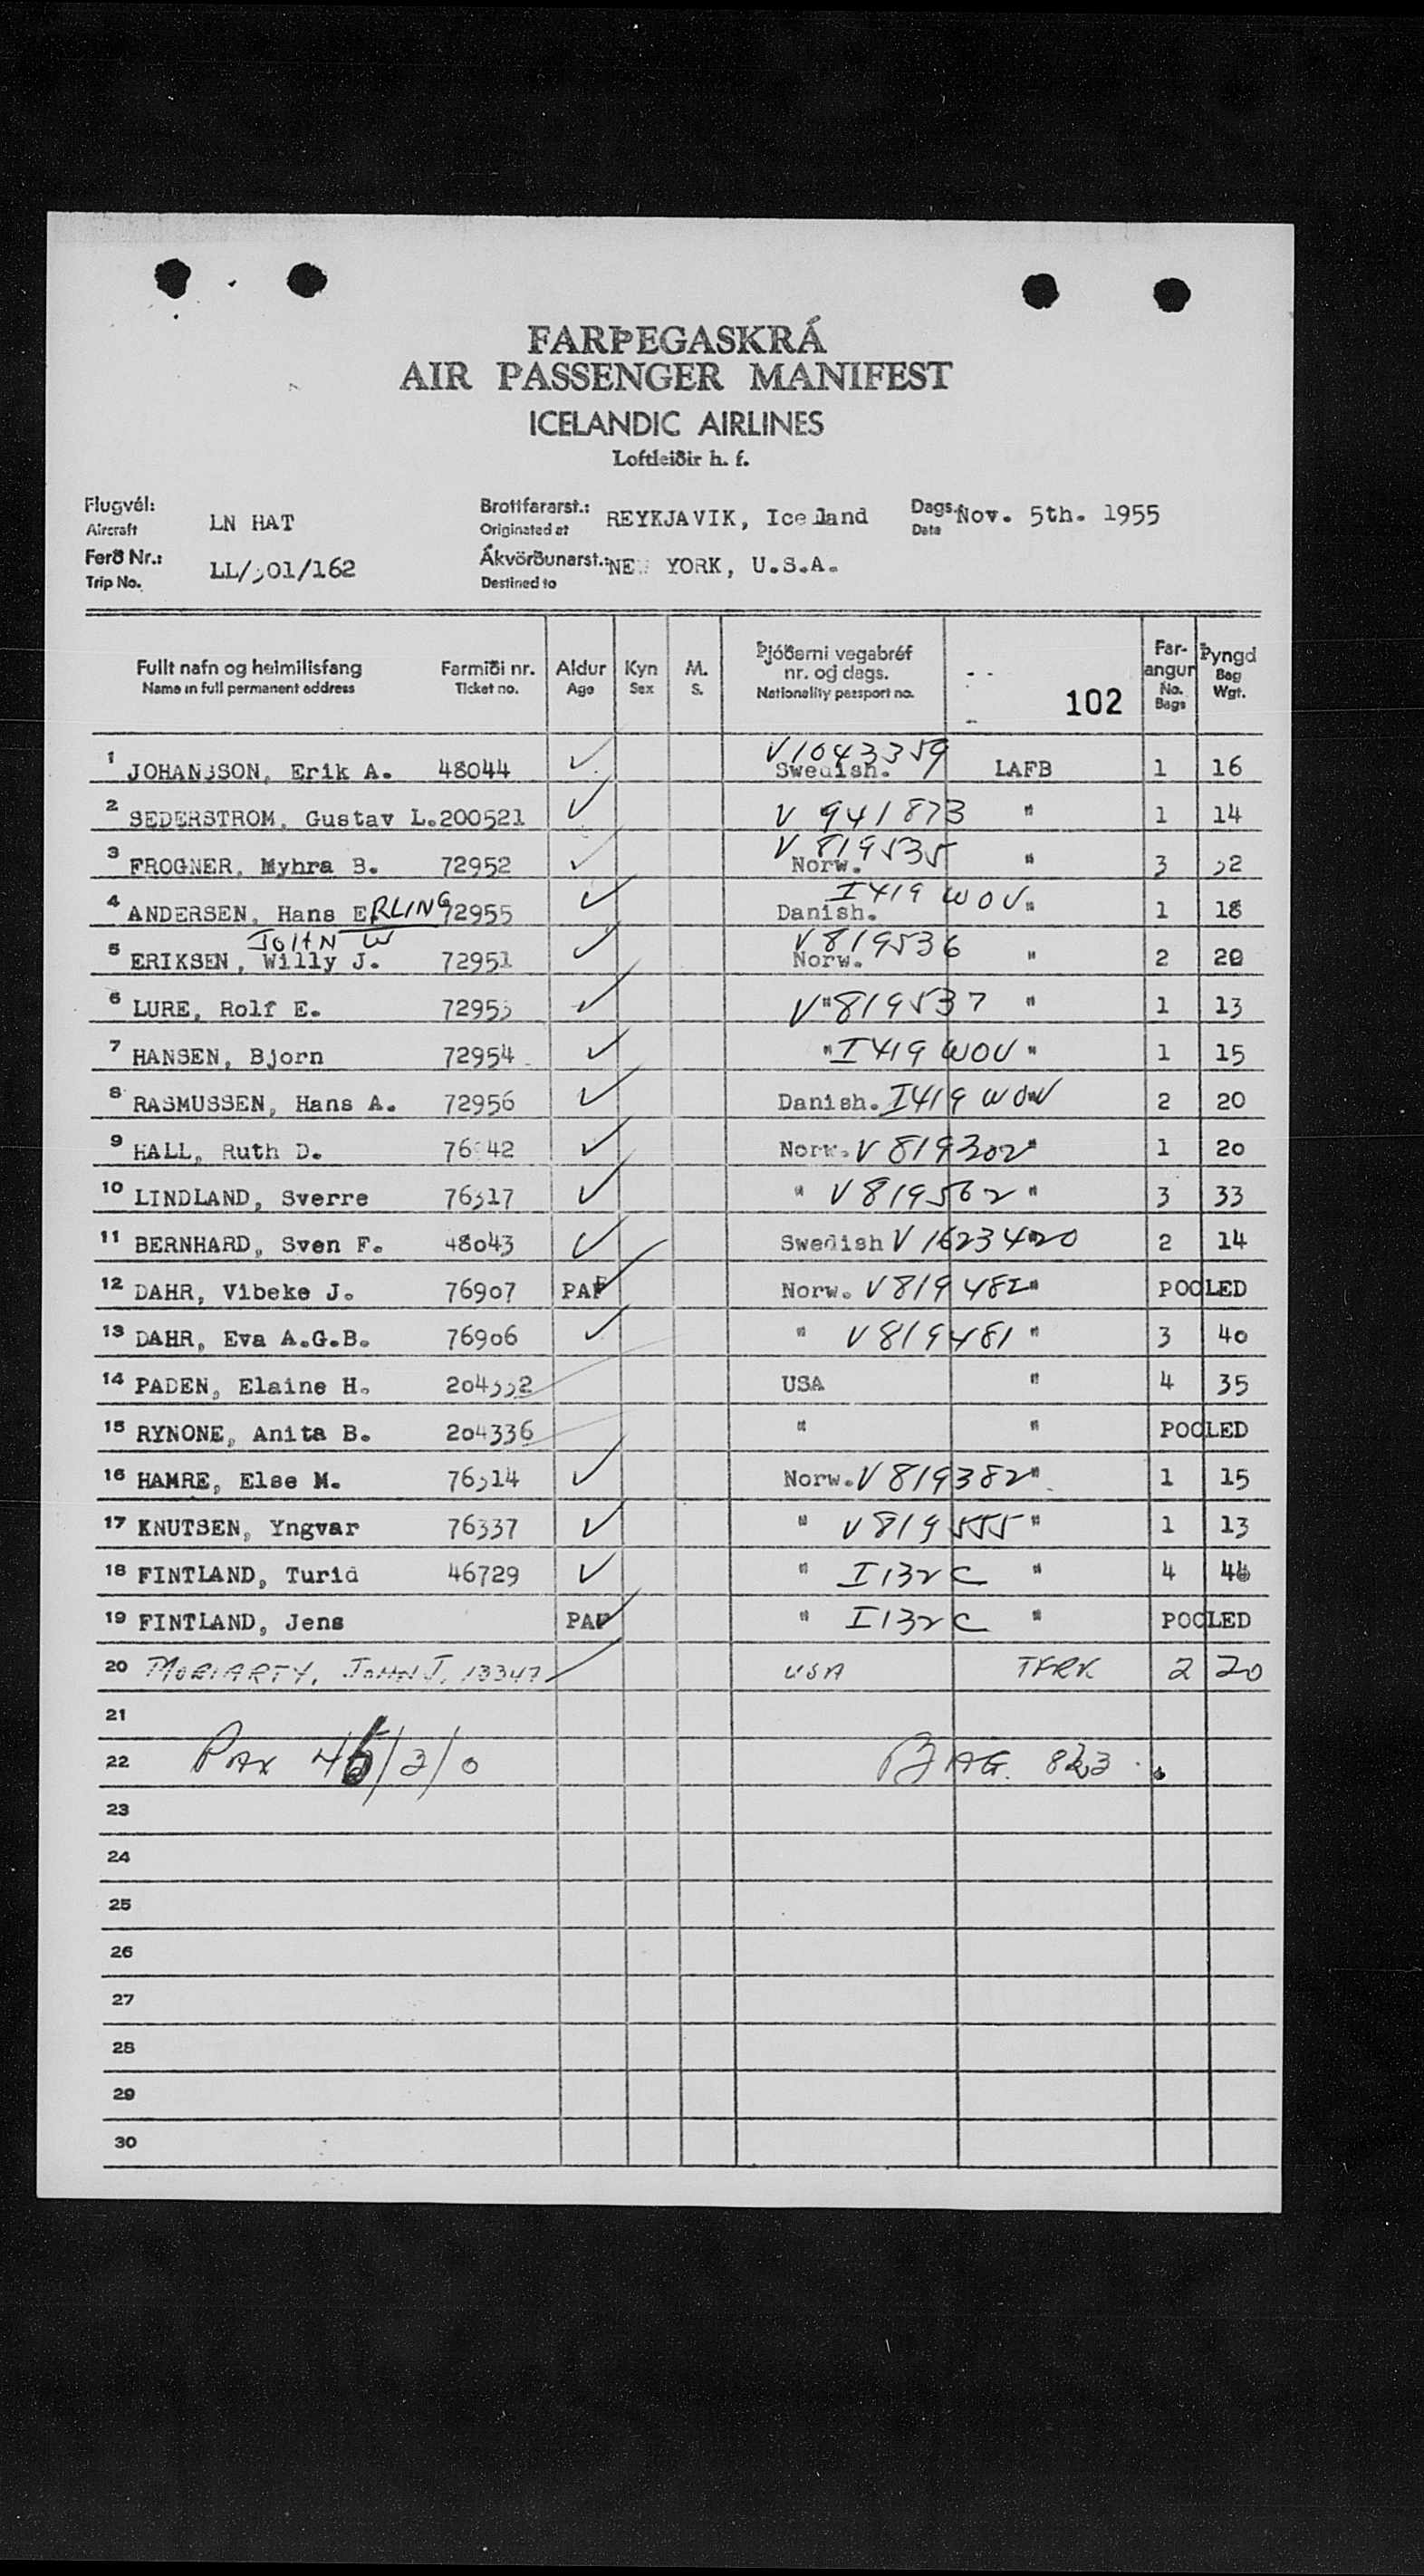 FARÞEGASKRÁ
AIR PASSENGER MANIFEST
ICELANDIC AIRLINES
Loftleiðir h. f.
Flugvél: Aircraft LN HAT Brottfararst.: Originated at REYKJAVIK, Iceland Dags. Date Nov. 5th. 1955
Ferð Nr.: Trip No. Ákvörðunarst.: Destined to NEW YORK, U.S.A.
Fullt nafn og heimilisfang Farmiði nr. Aldur Kyn M. Þjóðerni vegabréf nr. og dags. Farangur Þyngd
Name in full permanent address Ticket no. Age Sex S. Nationality passport no. 102 No. Bags Bag Wgt.
1 JOHANSSON, Erik A. 48044 ✓ V1043359 Swedish. LAFB 1 16
2 SEDERSTROM, Gustav L. 200521 ✓ V 941873 " 1 14
3 FROGNER, Myhra B. 72952 ✓ V 819535 Norw. " 3
4 ANDERSEN, Hans ERLING 72955 ✓ I419 WOV Danish. " 1 18
JOHN W
5 ERIKSEN, Willy J. 72951 ✓ V819536 Norw. " 2 20
6 LURE, Rolf E. ✓ " V819537 " 1 13
7 HANSEN, Bjorn 72954 ✓ " I419 WOV " 1 15
8 RASMUSSEN, Hans A. 72956 ✓ Danish. I419 WOV " 2 20
9 HALL, Ruth D. ✓ Norw. V819302 " 1 20
10 LINDLAND, Sverre 76317 ✓ " V819562 " 3 33
11 BERNHARD, Sven F. 48043 ✓ Swedish V1623420 2 14
12 DAHR, Vibeke J. 76907 ✓ Norw. V819482 " POOLED
13 DAHR, Eva A.G.B. 76906 ✓ " V819481 " 3 40
14 PADEN, Elaine H. 204332 USA " 4 35
15 RYNONE, Anita B. 204336 " " POOLED
16 HAMRE, Else M. 76314 ✓ Norw. V819382 " 1 15
17 KNUTSEN, Yngvar 76337 ✓ " V819555 " 1 13
18 FINTLAND, Turid 46729 ✓ " I132C " 4
19 FINTLAND, Jens ✓ " I132C " POOLED
20 MORIARTY, JOHN J. 13347 USA TFRK 2 20
21
22 PAX /2/0 BAG. 823
23
24
25
26
27
28
29
30